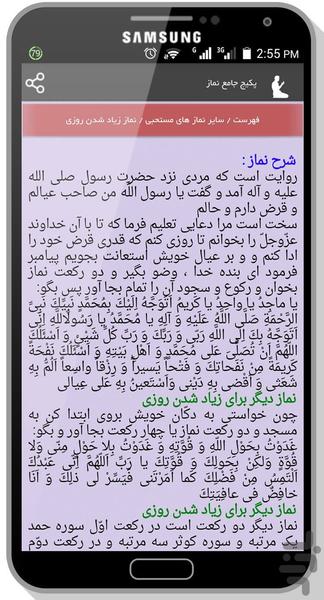 SAMSUNG
79
G
3G
2:55 PM
پکیج جامع نماز
فهرست / سایر نماز های مستحبی / نماز زیاد شدن روزی
شرح نماز :
روایت است که مردی نزد حضرت رسول صلی الله
علیه و آله آمد و گفت یا رسول الله من صاحب عیالم
و قرض دارم و حالم
سخت است مرا دعایی تعلیم فرما که تا با آن خداوند
عزّوجلّ را بخوانم تا روزی کنم که قدری قرض خود را
ادا کنم و و بر عیال خویش استعانت بجویم پیامبر
فرمود ای بنده خدا ، وضو بگیر و دو رکعت نماز
بخوان و رکوع و سجود آن را تمام بجا آور پس بگو:
یا ماجِدُ یا واحِدُ یا کَریمُ اَتَوَجَّهُ اِلَیْكَ بِمُحَمَّدٍ نَبِیِّكَ نَبِیِّ
الرَّحْمَةِ صَلَّی اللَّهُ عَلَیْهِ وَ آلِهِ یا مُحَمَّدُ یا رَسُولَ‌اللَّهِ اِنّی
اَتَوَجَّهُ بِكَ اِلَی اللَّهِ رَبّی وَ رَبِّكَ وَ رَبِّ کُلِّ شَیْئٍ وَ اَسْئَلُكَ
اللَّهُمَّ اَنْ تُصَلِّیَ عَلی مُحَمَّدٍ وَ اَهْلِ بَیْتِهِ وَ اَسْئَلُكَ نَفْحَةً
کَریمَةً مِنْ نَفَحاتِكَ وَ فَتْحاً یَسیراً وَ رِزْقاً واسِعاً اَلُمُّ بِهِ
شَعَثی وَ اَقْضی بِهِ دَیْنی وَاَسْتَعینُ بِهِ عَلی عِیالی
نماز دیگر برای زیاد شدن روزی
چون خواستی به دکان خویش بروی ابتدا کن به
مسجد و دو رکعت نماز یا چهار رکعت بجا آور و بگو:
غَدَوْتُ بِحَوْلِ اللَّهِ وَ قُوَّتِهِ وَ غَدَوْتُ بِلا حَوْلٍ مِنّی وَلا
قُوَّةٍ وَلکِنْ بِحَوْلِكَ وَ قُوَّتِكَ یا رَبِّ اَللَّهُمَّ اِنّی عَبْدُكَ
اَلْتَمِسُ مِنْ فَضْلِكَ کَما اَمَرْتَنی فَیَسِّرْ لی ذلِكَ وَ اَنَا
خافِضٌ فی عافِیَتِكَ
نماز دیگر برای زیاد شدن روزی
نماز دیگر دو رکعت است در رکعت اوّل سوره حمد
یک مرتبه و سوره کوثر سه مرتبه و در رکعت دوّم